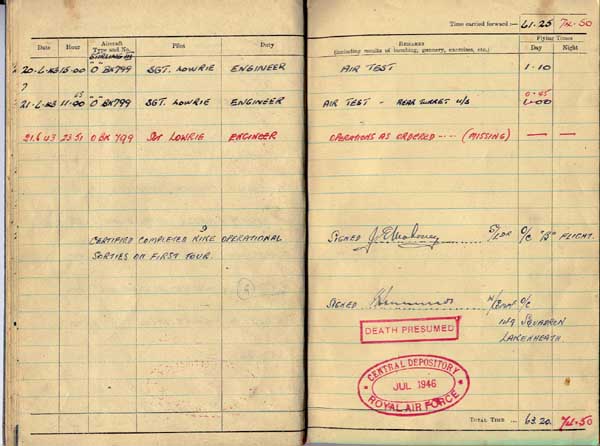 Time carried forward :— 61.25 74.50
Date Hour Aircraft Type and No. Pilot Duty Remarks (including results of bombing, gunnery, exercises, etc.) Flying Times Day Night
STIRLING III
20.6.43 15.00 O BK799 SGT. LOWRIE ENGINEER AIR TEST 1.10
21.6.43 11.00 O BK799 SGT. LOWRIE ENGINEER AIR TEST - REAR TURRET U/S 0.45
21.6.43 23.51 O BK799 SGT LOWRIE ENGINEER OPERATIONS AS ORDERED ---- (MISSING) — —
9
CERTIFIED COMPLETED NINE OPERATIONAL
SORTIES ON FIRST TOUR.
SIGNED S/LDR O/C "B" FLIGHT.
SIGNED W/COMM O/C
149 SQUADRON
LAKENHEATH
DEATH PRESUMED
CENTRAL DEPOSITORY
JUL 1946
ROYAL AIR FORCE
TOTAL TIME ... 63.20 74.50